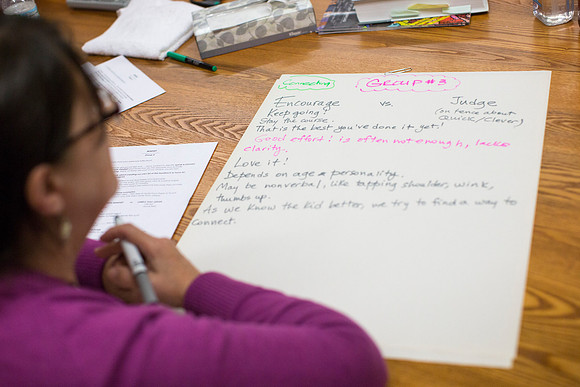 Connecting GROUP #3
Encourage vs. Judge
Keep going! (on fence about
Stay the course. Quick/Clever)
That is the best you've done it yet!
Good effort! is often not enough, lacks
clarity.
Love it!
Depends on age & personality.
May be nonverbal, like tapping shoulder, wink,
thumbs up.
As we know the kid better, we try to find a way to
connect.